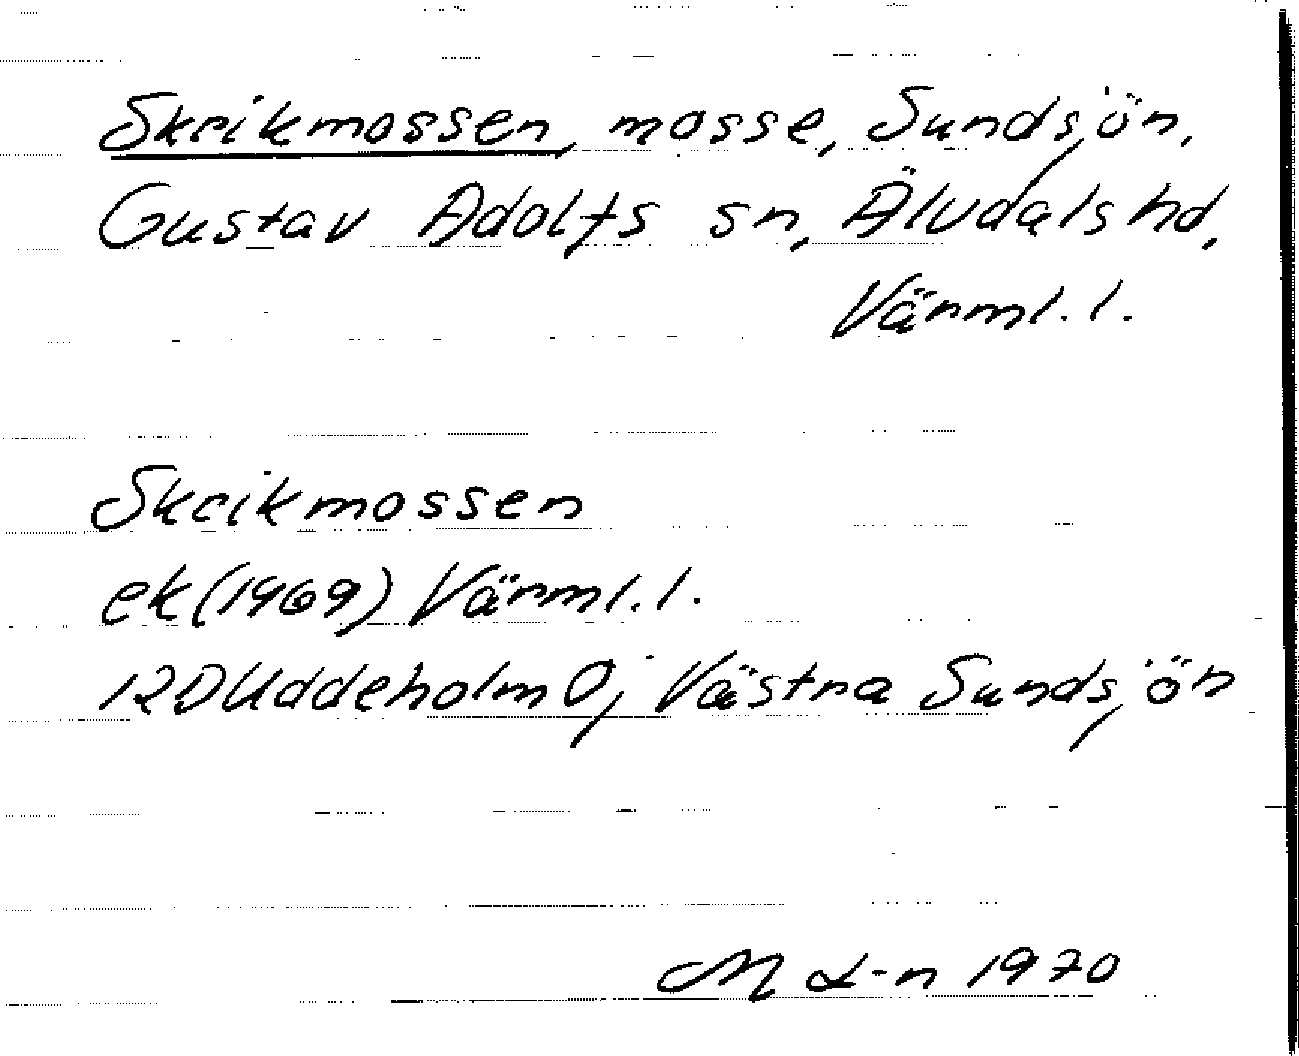 Skrikmossen, mosse, Sundsjön,
Gustav Adolfs sn, Älvdals hd,
Värml. l.
Skrikmossen
ek (1969) Värml. l.
12D Uddeholm 0j Västra Sundsjön
M L-n 1970